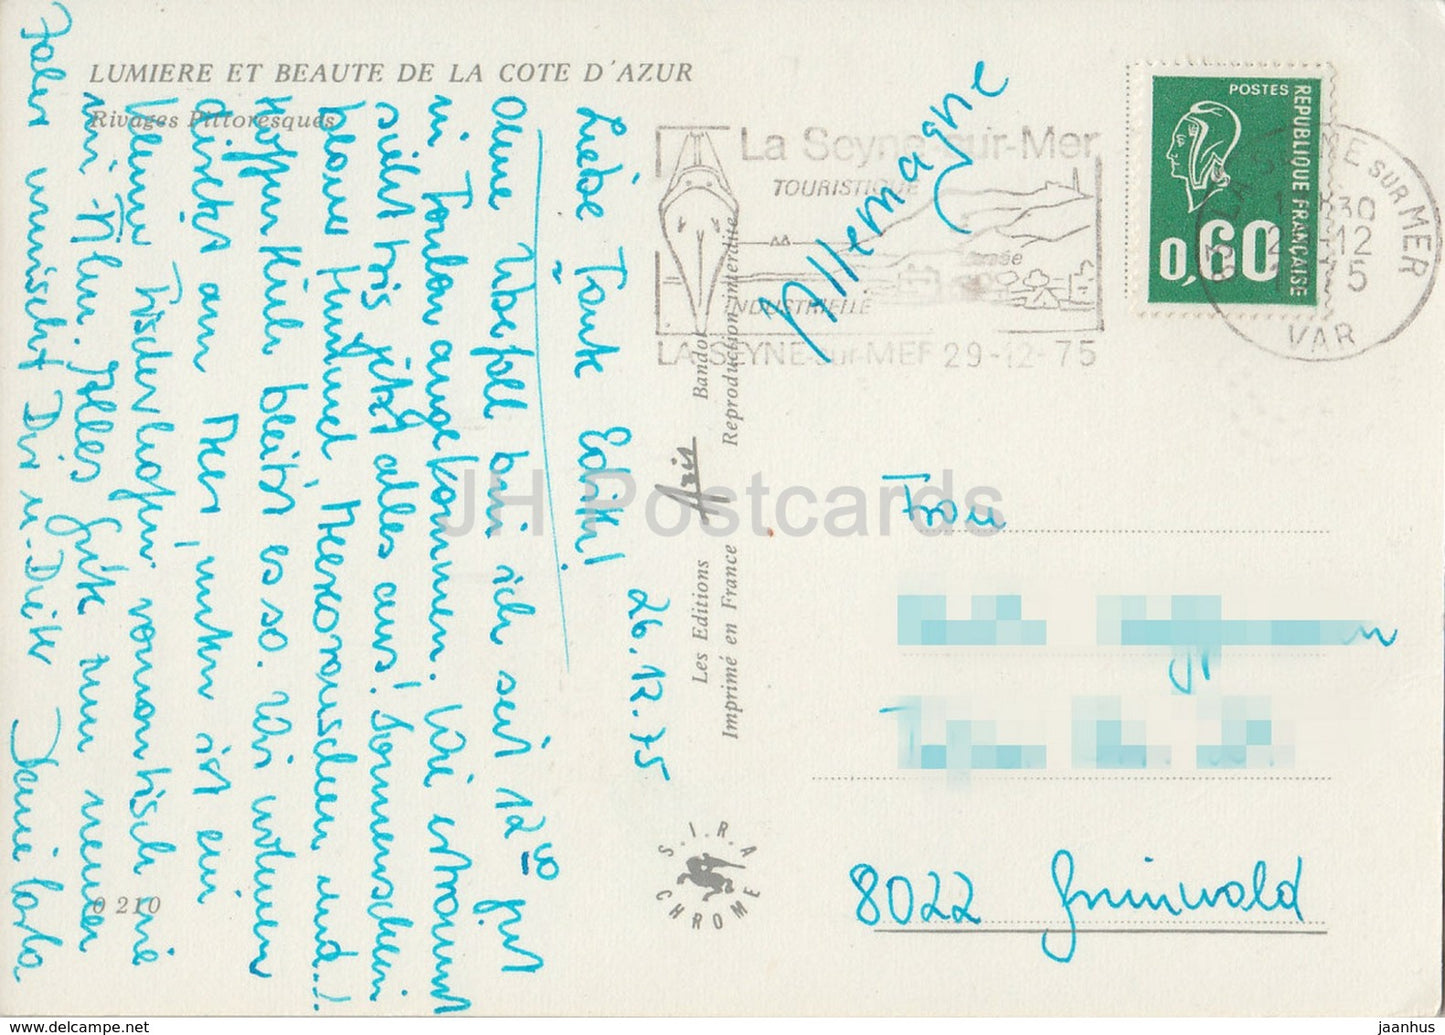 LUMIERE ET BEAUTE DE LA COTE D'AZUR
Rivages Pittoresques
26.12.75
Liebe Tante Edith!
Ohne Überfall bin ich seit 12 gut
in Toulon angekommen. Wie erstaunt
sieht bis jetzt alles aus! Sonnenschein
blauer Himmel Meeresrauschen und..!
hoffentlich bleibt es so. Wir wohnen
direkt am Meer, unten ist ein
kleiner Fischerhafen romantisch wie
im Film. Alles Gute zum neuen
Jahr wünscht Dir u. Dieter
0 210
Les Editions Aris Bandol
Imprimé en France Reproduction interdite
S.I.R.A
CHROME
La Seyne-sur-Mer
TOURISTIQUE
INDUSTRIELLE
LA SEYNE-sur-MER 29-12-75
Allemagne
POSTES
REPUBLIQUE FRANÇAISE
0,60
83 LA SEYNE sur MER
VAR
Frau
8022 Grünwald
JH Postcards
www.delcampe.net
jaanhus